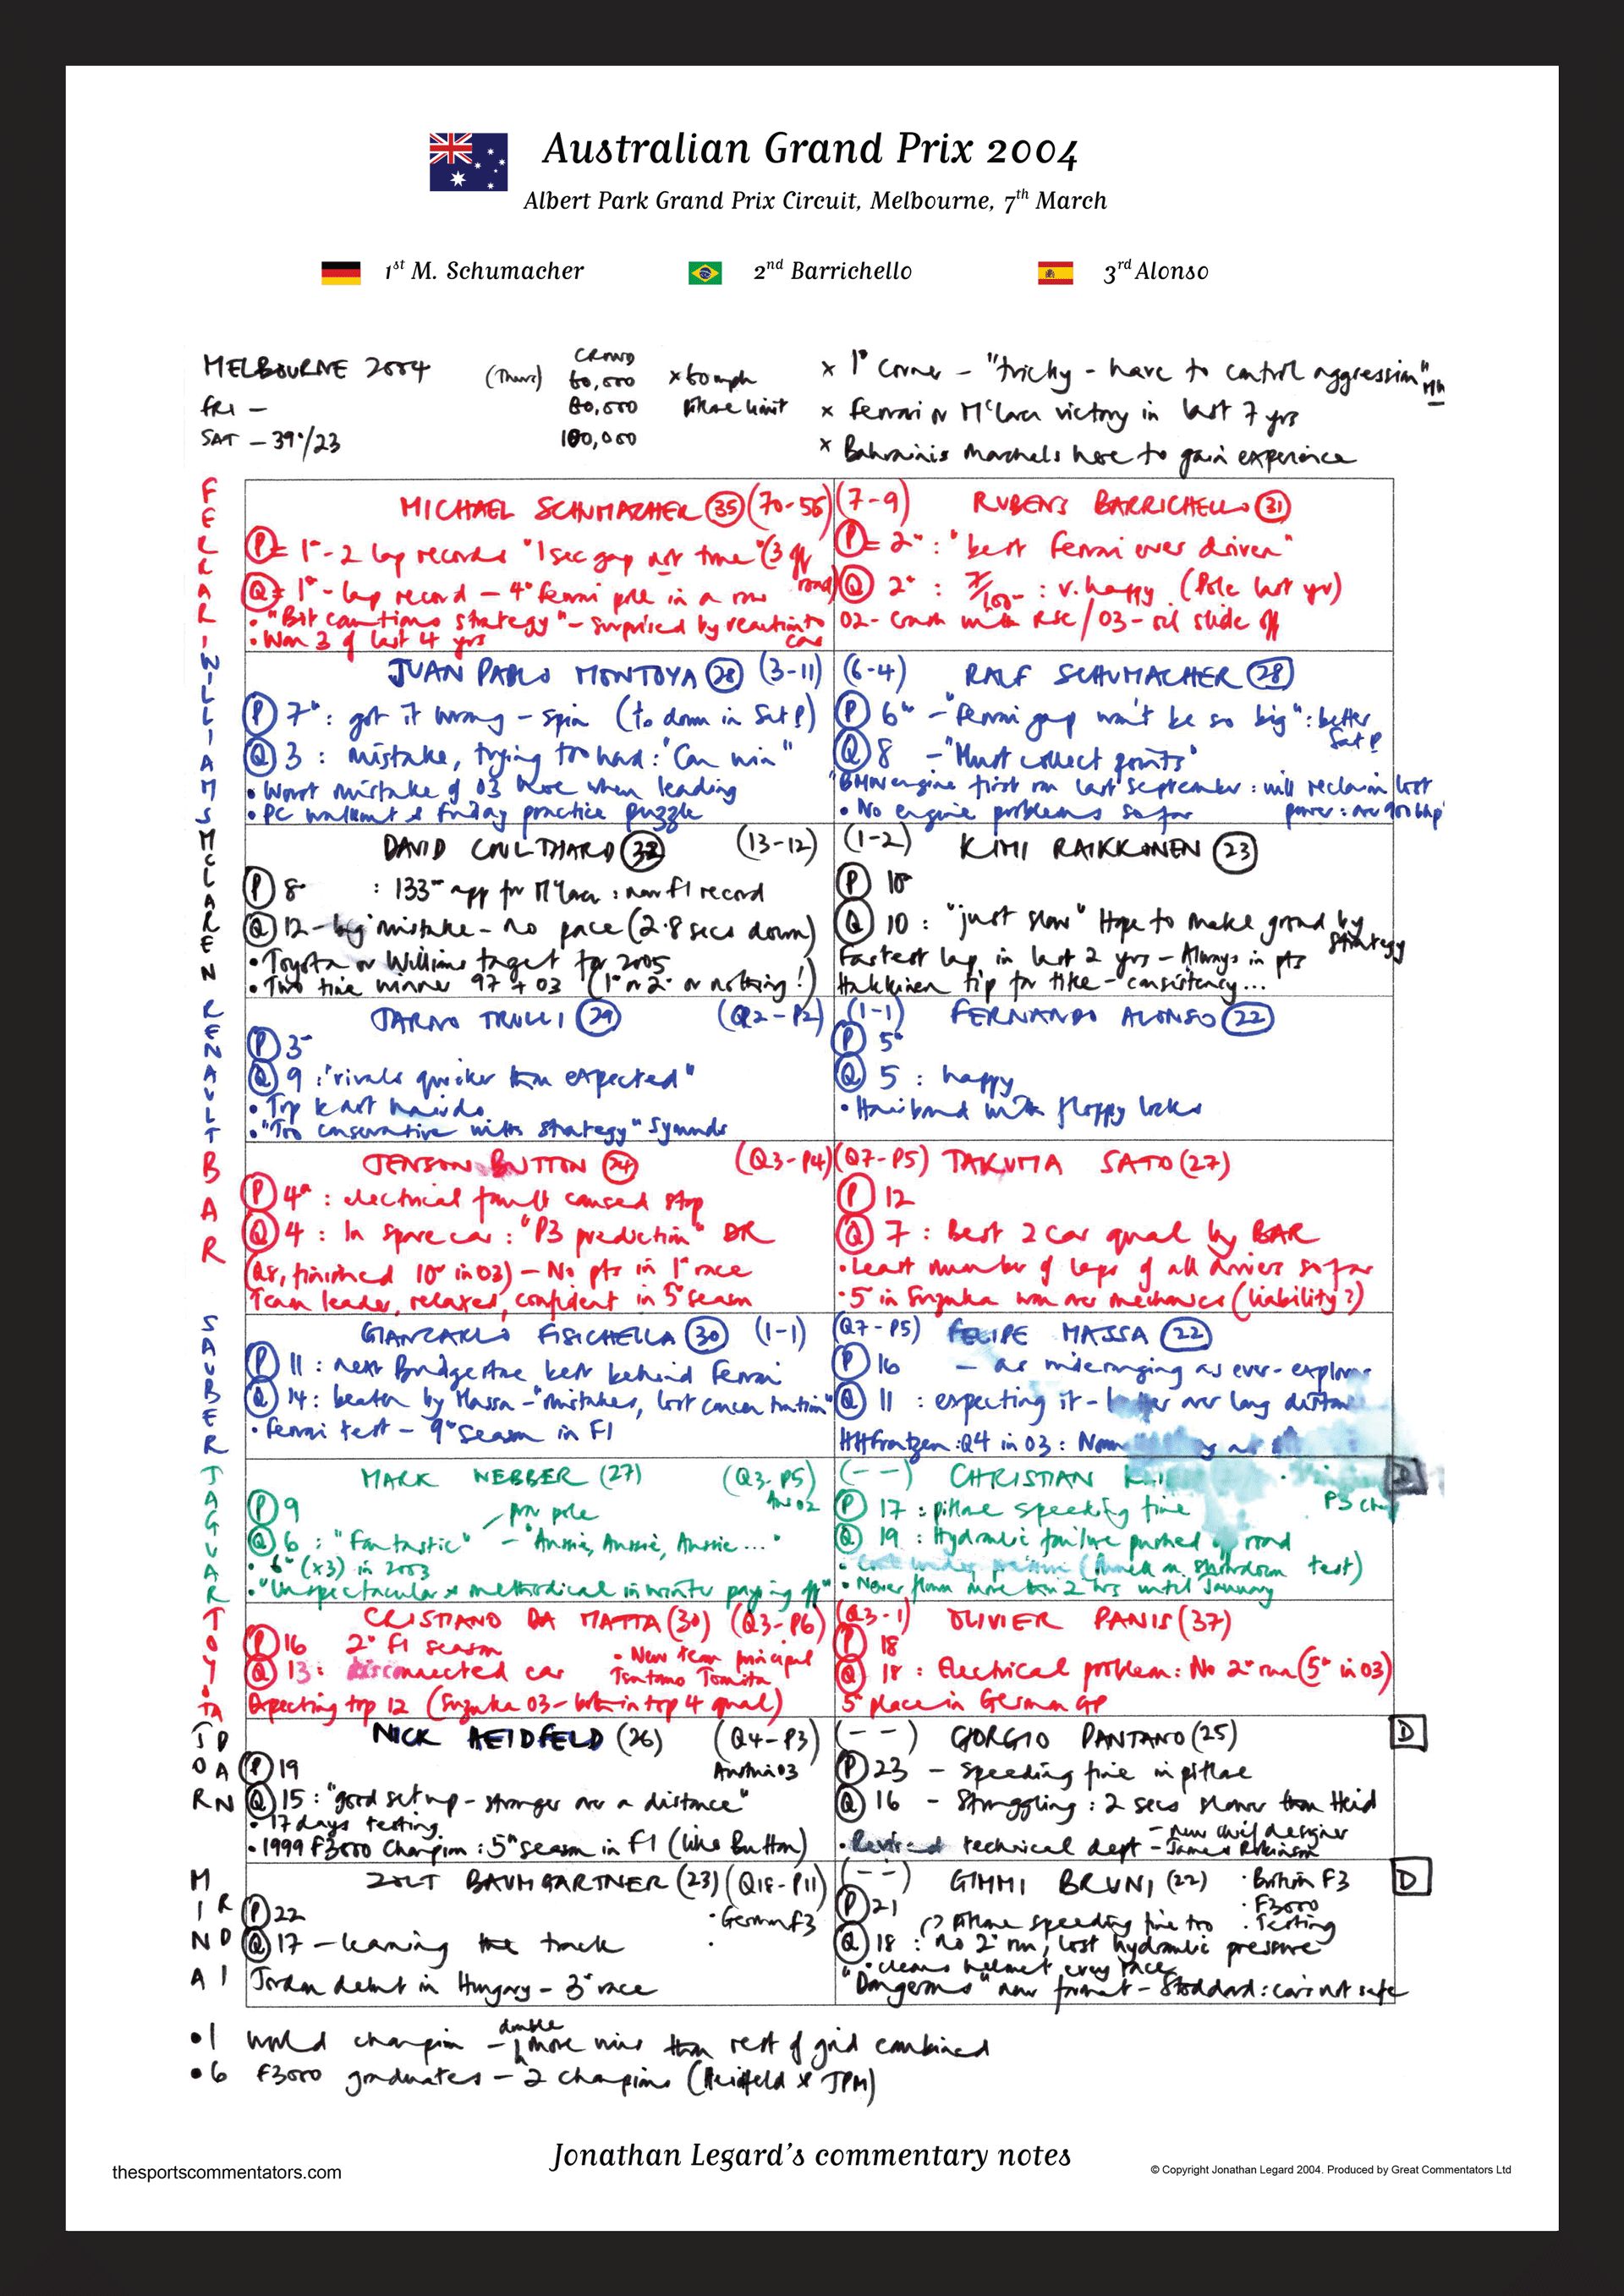 Australian Grand Prix 2004
Albert Park Grand Prix Circuit, Melbourne, 7th March
1st M. Schumacher 2nd Barrichello 3rd Alonso
MELBOURNE 2004
FRI -
SAT - 39°/23
CROWD
(Thurs) 60,000
80,000
100,000
x 60 mph
Pitlane limit
x 1st Corner - "tricky - have to control aggression" MW
x Ferrari or McLaren victory in last 7 yrs
x Bahrainis marshals here to gain experience
FERRARI
MICHAEL SCHUMACHER 35 (70-56)
P = 1st - 2 lap records "1 sec gap not true" (3 off road)
Q = 1st - lap record - 4th Ferrari pole in a row
• "Bit cautious strategy" - surprised by reaction to car
• Won 3 of last 4 yrs
(7-9) RUBENS BARRICHELLO 31
P = 2nd : "best Ferrari ever driven"
Q 2nd : 7/100 : v. happy (Pole last yr)
02 - crash with RSC / 03 - oil slide off
WILLIAMS
JUAN PABLO MONTOYA 28 (3-11)
P 7th : got it wrong - spin (to down in Sat P)
Q 3 : mistake, trying too hard : "Can win"
• Worst mistake of 03 here when leading
• PC walkout & friday practice puzzle
(6-4) RALF SCHUMACHER 28
P 6th - "Ferrari gap won't be so big" : better Sat P
Q 8 - "Must collect points"
"BMW engine first run last September : will reclaim lost
• No engine problems so far power : over 900 bhp"
MCLAREN
DAVID COULTHARD 32 (13-12)
P 8th : 133rd app for McLaren : new F1 record
Q 12 - big mistake - no pace (2.8 secs down)
• Toyota or Williams target for 2005
• Two time winner 97 + 03 (1st or 2nd or nothing!)
(1-2) KIMI RAIKKONEN 23
P 10th
Q 10 : "just slow" Hope to make ground by strategy
Fastest lap in last 2 yrs - Always in pts
Hakkinen tip for title - consistency...
RENAULT
JARNO TRULLI 29 (Q2-P2)
P 3rd
Q 9 : "rivals quicker than expected"
• Top knot hairdo
• "Too conservative with strategy" Symonds
(1-1) FERNANDO ALONSO 22
P 5th
Q 5 : happy
• Hairband with floppy locks
BAR
JENSON BUTTON 24 (Q3-P4)
P 4th : electrical fault caused stop
Q 4 : In spare car : "P3 prediction" DR
(Q8, finished 10th in 03) - No pts in 1st race
Team leader, relaxed, confident in 5th season
(Q7-P5) TAKUMA SATO (27)
P 12
Q 7 : Best 2 car qual by BAR
• Least number of laps of all drivers so far
• 5th in Suzuka won over mechanics (liability?)
SAUBER
GIANCARLO FISICHELLA 30 (1-1)
P 11 : next Bridgestone best behind Ferrari
Q 14 : beaten by Massa - "mistakes, lost concentration"
• Ferrari test - 9th season in F1
(Q7-P5) FELIPE MASSA 22
P 16 - as wide ranging as ever - explorer
Q 11 : expecting it - better over long distance
HHFrentzen : Q4 in 03 :
JAGUAR
MARK WEBBER (27) (Q3-P5)
Aus 02
P 9 prov pole
Q 6 : "Fantastic" - "Aussie, Aussie, Aussie..."
• 6th (x3) in 2003
• "Unspectacular & methodical in winter paying off"
(--) CHRISTIAN D
P 17 : pitlane speeding fine
Q 19 : Hydraulic failure pushed off road
test)
• Never flown more than 2 hrs until January
TOYOTA
CRISTIANO DA MATTA (30) (Q3-P6)
P 16 2nd F1 season • New team principal
Q 13 : disconnected car Tsutomo Tomita
Expecting top 12 (Suzuka 03 - both in top 4 qual)
(Q3-1) OLIVIER PANIS (37)
P 18
Q 18 : Electrical problem : No 2nd run (5th in 03)
5th place in German GP
JORDAN
NICK HEIDFELD (26) (Q4-P3)
P 19 Austria 03
Q 15 : "good set up - stronger over a distance"
• 17 days testing
• 1999 F3000 Champion : 5th season in F1 (like Button)
(--) GIORGIO PANTANO (25) D
P 23 - speeding fine in pitlane
Q 16 - Struggling : 2 secs slower than Heid
• Revised technical dept - new chief designer
- James Robinson
MINARDI
ZSOLT BAUMGARTNER (23) (Q18-P11)
P 22 • German F3
Q 17 - learning the track
Jordan debut in Hungary - 3rd race
(--) GIMMI BRUNI (22) • British F3 D
P 21 • F3000
Pitlane speeding fine too • Testing
Q 18 : no 2nd run, lost hydraulic pressure
• cleans helmet every race
"Dangerous" new format - Stoddard : cars not safe
• 1 world champion - double more wins than rest of grid combined
• 6 F3000 graduates - 2 champions (Heidfeld & JPM)
Jonathan Legard's commentary notes
thesportscommentators.com
© Copyright Jonathan Legard 2004. Produced by Great Commentators Ltd